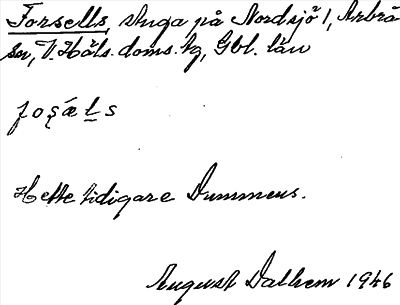 Forsells, stuga på Nordsjö 1, Arbrå
sn, V. Häls. doms. tg, Gbl. län
foʂæḷs
Hette tidigare Dummeus.
August Dalhem 1946